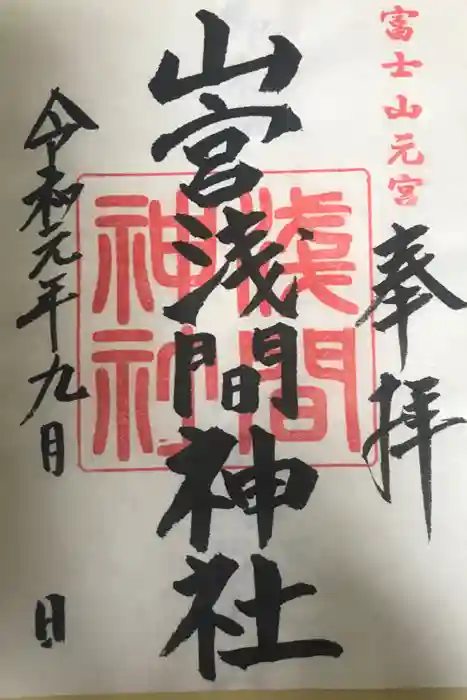 富士山元宮
奉拝
山宮浅間神社
淺間
神社
令和元年九日
日